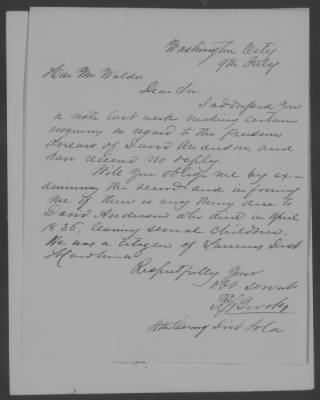 Washington City
9th July
Hon Mr Waldo
Dear Sir
I addressed you
a note last week making certain
inquiry in regard to the pension
arrears of David Anderson, and
have received no reply
Will you oblige me by ex-
amining the record and informing
me if there is any thing due to
David Anderson who died in April
1836, leaving several children.
He was a citizen of Laurens Dist
S Carolina
Respectfully Your
obt servt
P S Brooks
4th Cong Dist So Ca